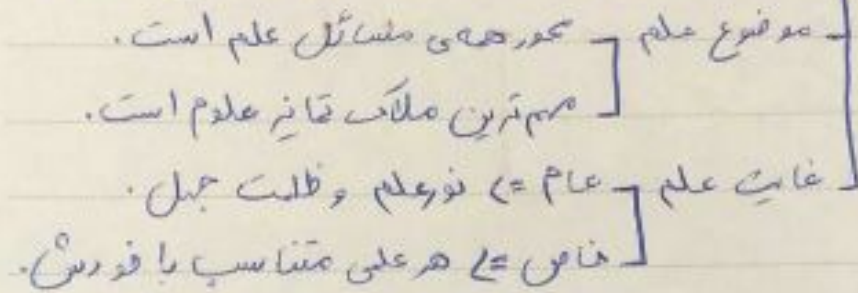 موضوع علم محور همه‌ی مسائل علم است.
مهم‌ترین ملاک تمایز علوم است.
غایت علم عام => نور علم و ظلمت جهل.
خاص => هر علمی متناسب با خودش.